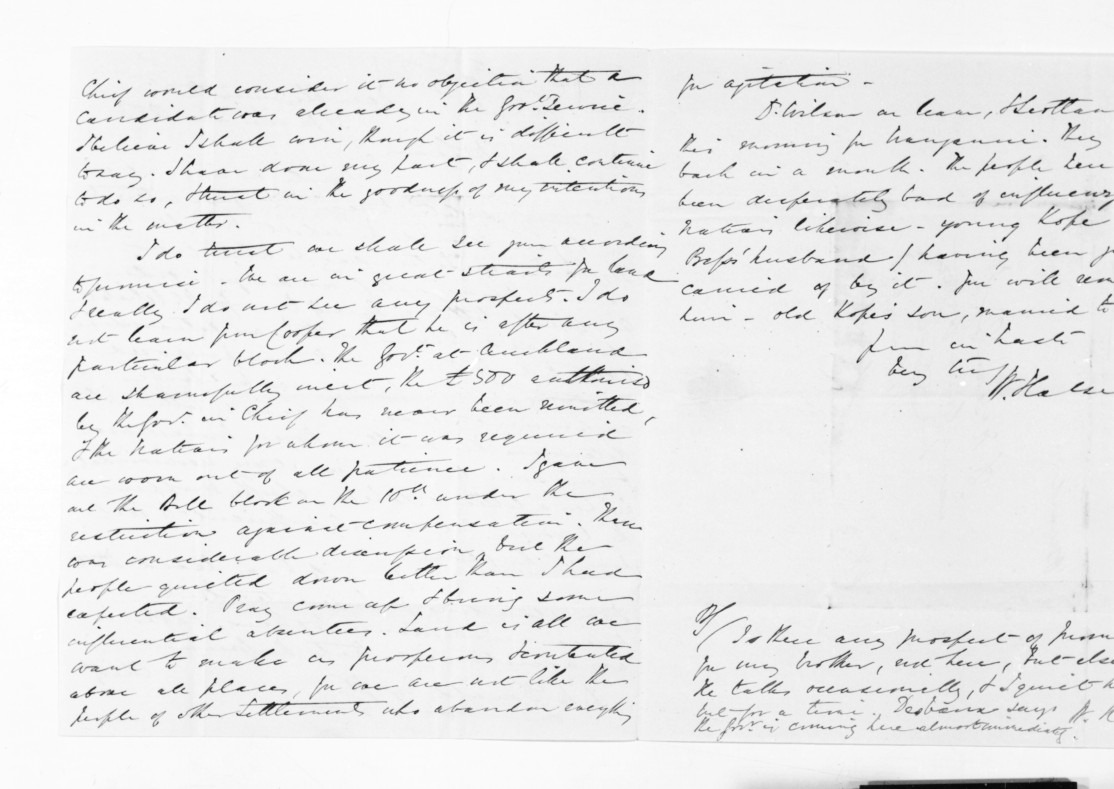 Chief would consider it no objection that a
candidate was already in the Govt. Service.
I believe I shall win, though it is difficult
to say. I have done my part, & shall continue
to do so, & trust in the goodness of my intentions
in the matter.
I do trust we shall see you according
to promise. We are in great straits for land
& really I do not see any prospect. I do
not learn from Cooper that he is after any
particular block. The Govt. at Auckland
are shamefully inert, the £500 authorised
by the Govr. in Chief has never been remitted,
& the Natives for whom it was required
are worn out of all patience. I gave
out the Bell block on the 10th under the
restriction against compensation. There
was considerable discussion, but the
people quieted down better than I had
expected. Pray come up, & bring some
influential absentees. Land is all we
want to make us prosperous & contented
above all places, for we are not like the
people of other Settlements who abandon everything
for agitation -
Dr. Wilson on leave, & Scotland
this morning for Wanganui. They
back in a month. The people here
been desperately bad of influenza
Natives likewise - young Hope
Bess' husband) having been
carried off by it. You will
him - old Hope's son, married to
from in haste
Very truly
W. Halse
PS/ Is there any prospect of
for my brother, not here, but
He talks occasionally, & I quiet
but for a time. says W. H
the Govr. is coming here almost immediately.